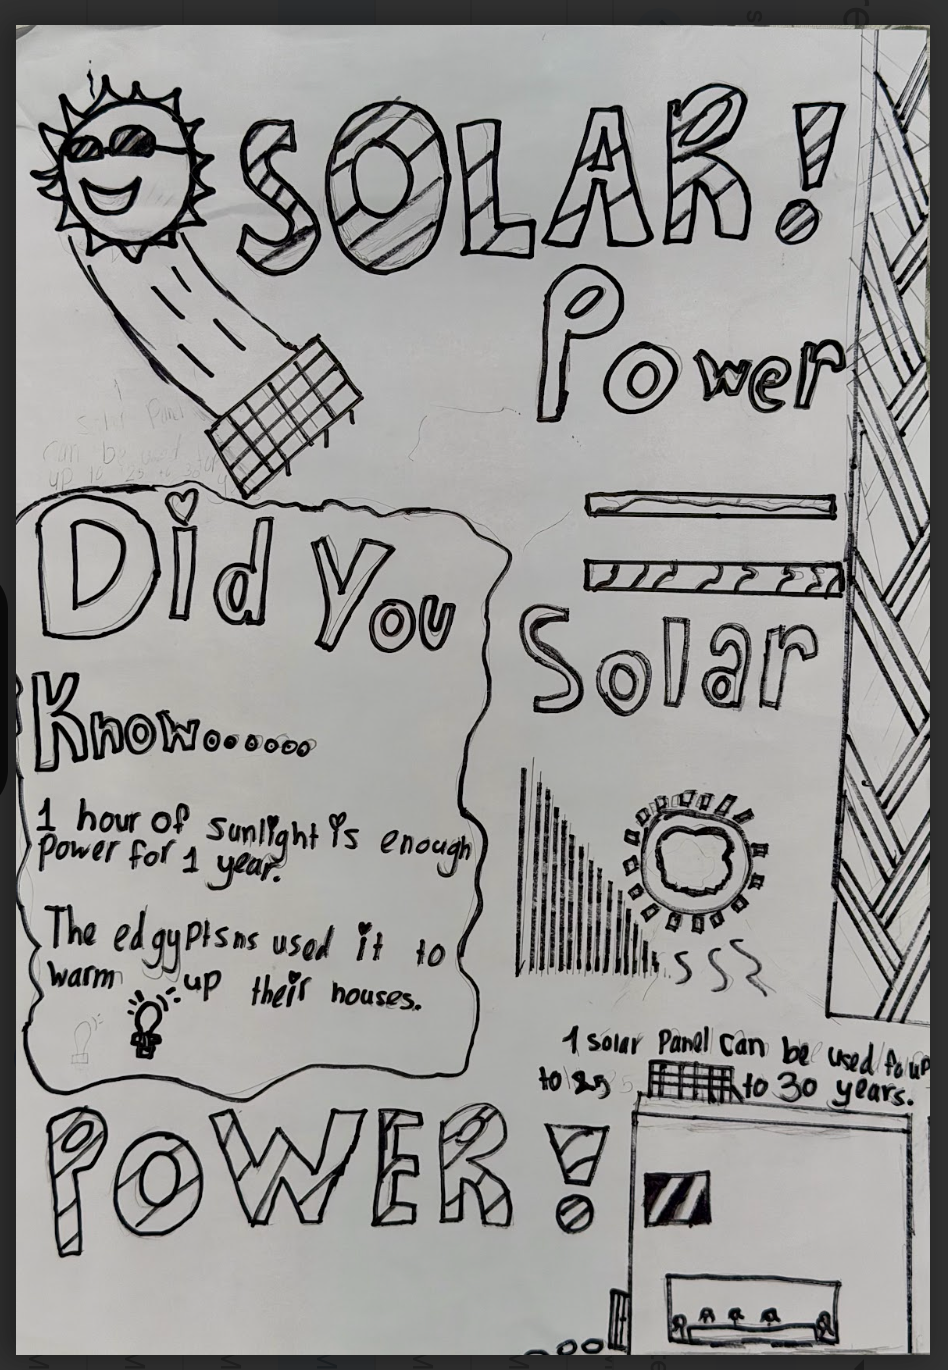 SOLAR!
Power
Did You
Know.......
1 hour of sunlight is enough
Power for 1 year.
The edgyptsns used it to
warm up their houses.
Solar
1 solar Panel can be used to up
to 25 to 30 years.
POWER!